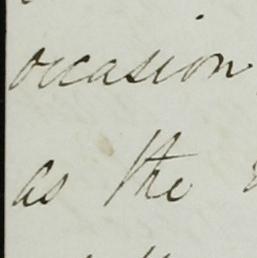 occasion
as the